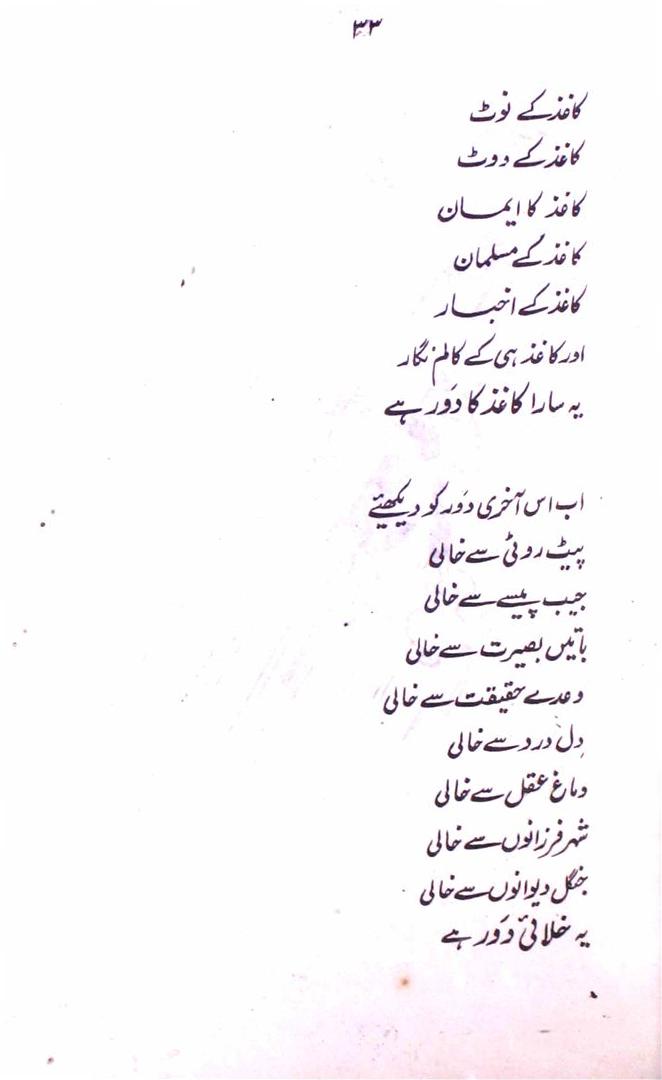 ۳۳
کاغذ کے نوٹ
کاغذ کے ووٹ
کاغذ کا ایمان
کاغذ کے مسلمان
کاغذ کے اخبار
اور کاغذ ہی کے کالم نگار
یہ سارا کاغذ کا دَور ہے
اب اس آخری دَور کو دیکھیئے
پیٹ روٹی سے خالی
جیب پیسے سے خالی
باتیں بصیرت سے خالی
وعدے حقیقت سے خالی
دِل درد سے خالی
دماغ عقل سے خالی
شہر فرزانوں سے خالی
جنگل دیوانوں سے خالی
یہ خلائی دَور ہے